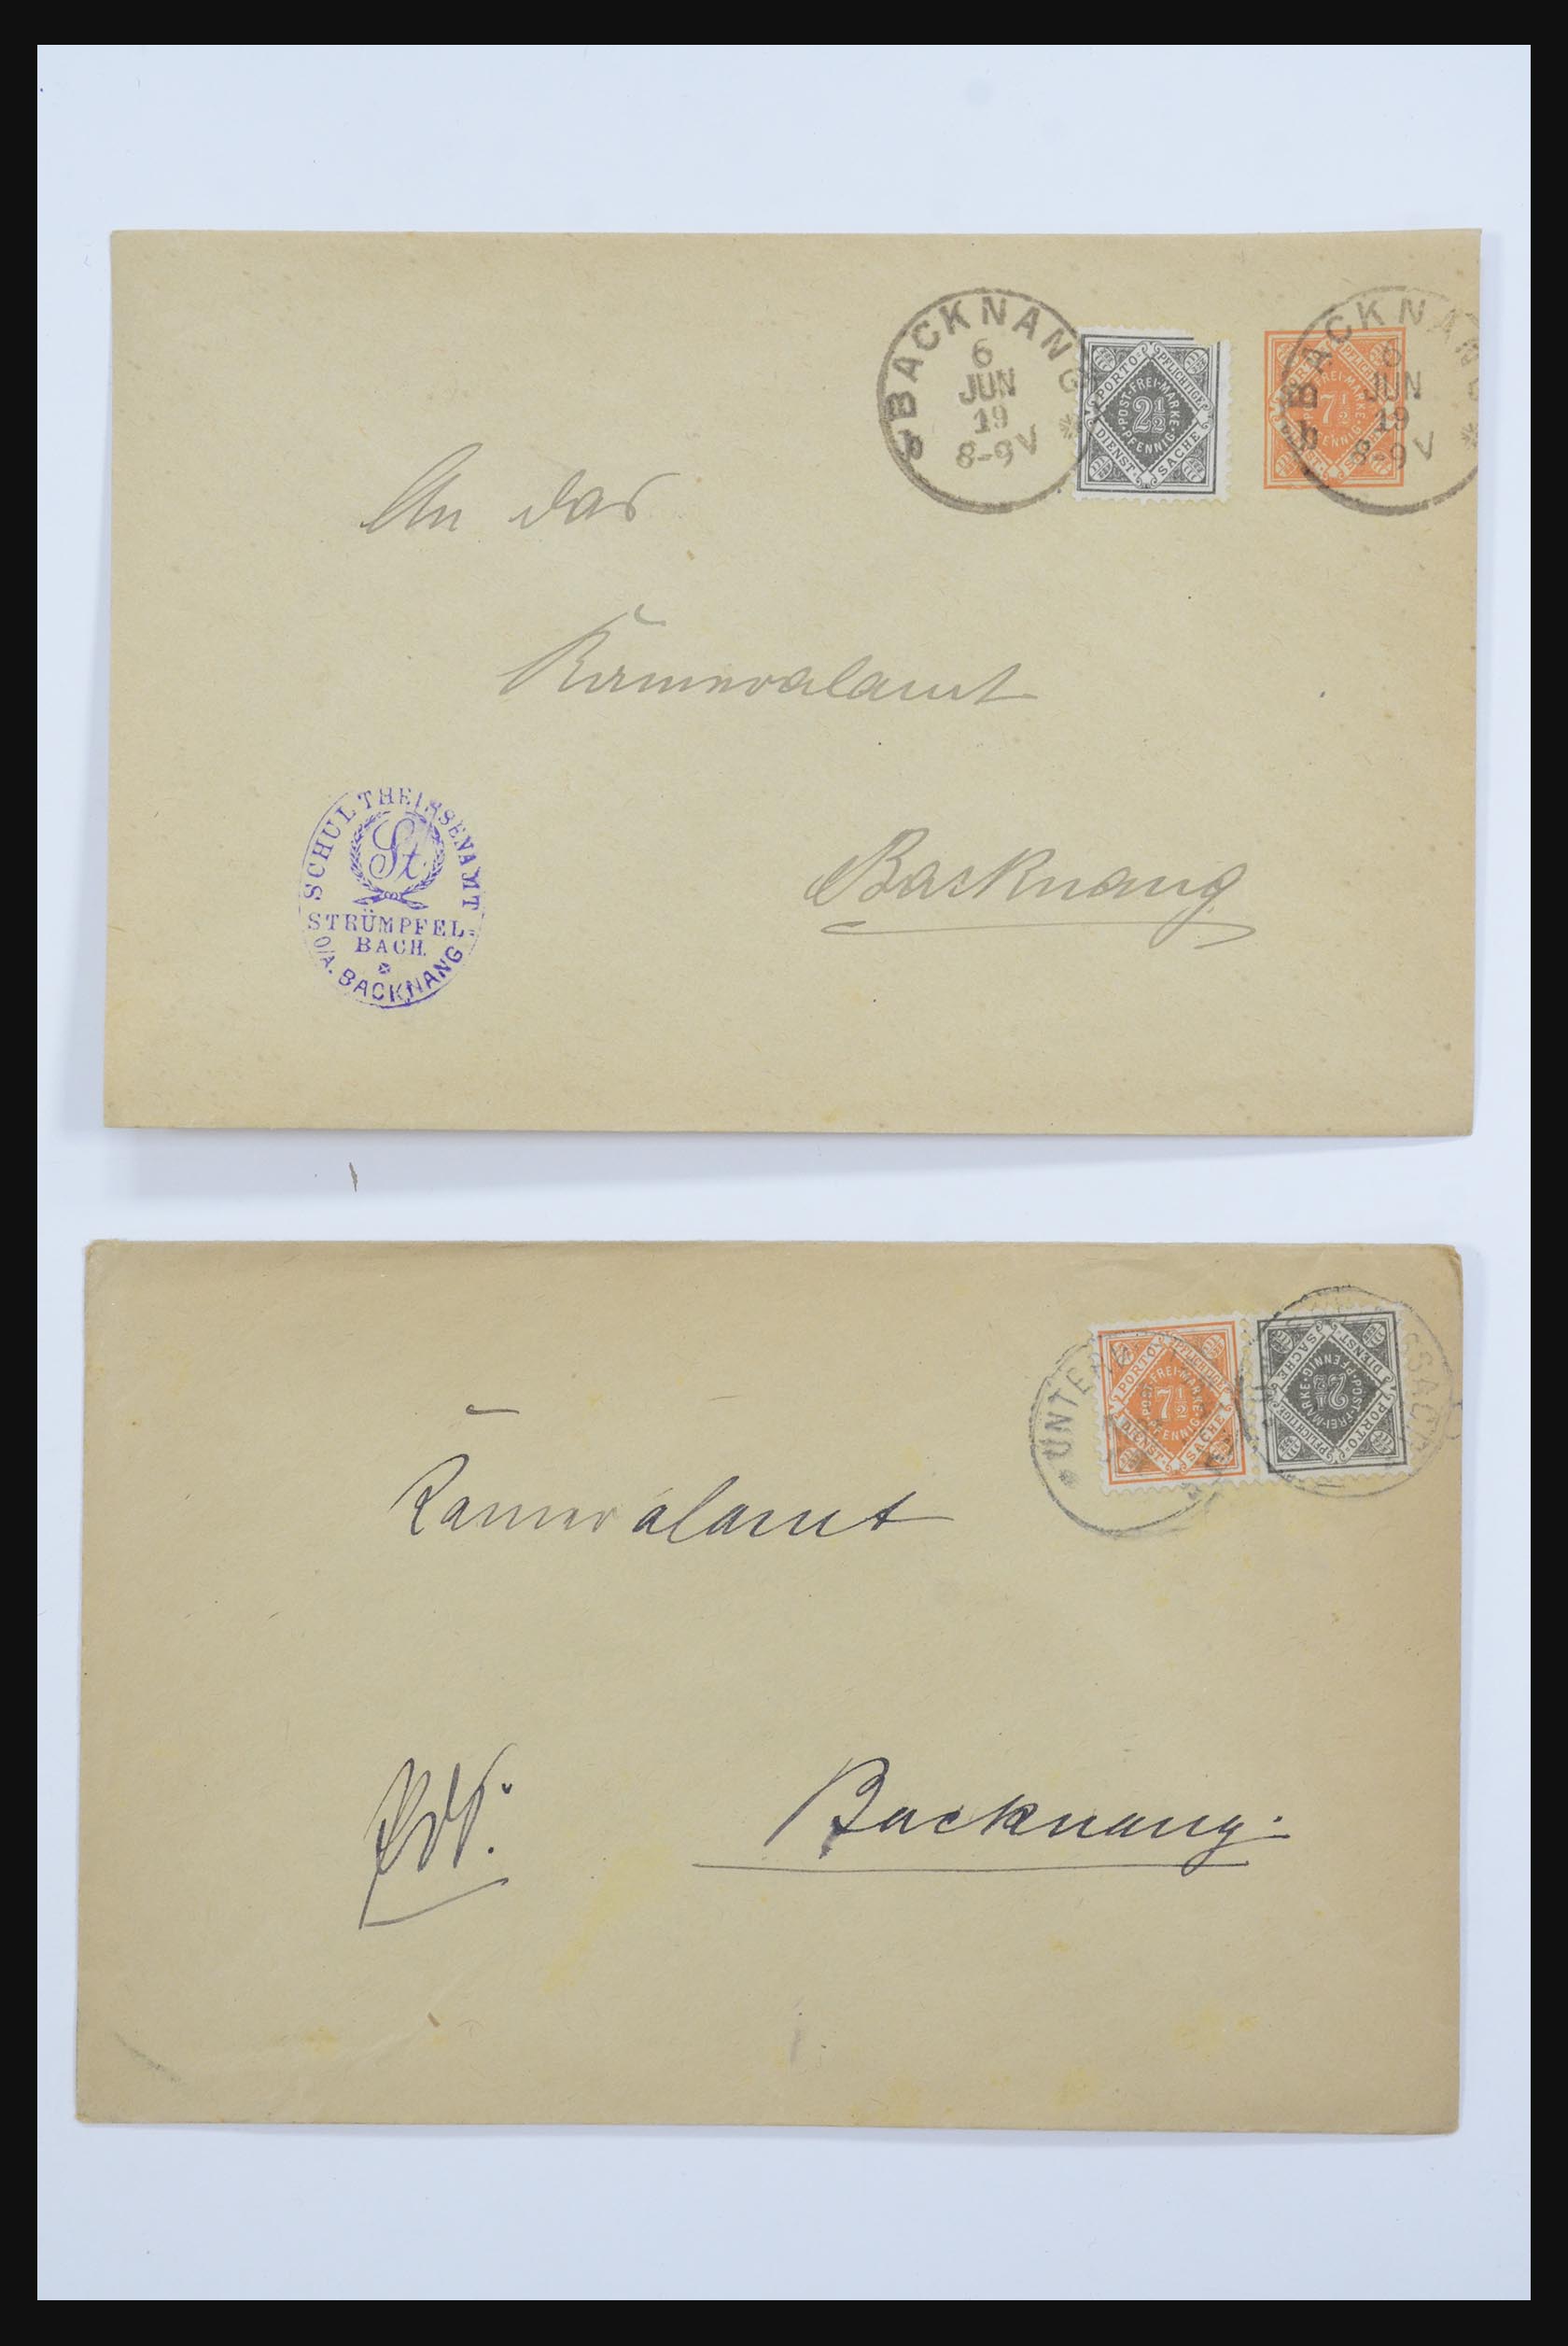 BACKNANG
6
JUN
19
8-9 V
PORTO-PFLICHTIGE
POST-FREI-MARKE
2½
PFENNIG
DIENST-SACHE
BACKNA
6
JUN
19
8-9 V
PFLICHTIGE
FREI-MARKE
7½
PFENNIG
An das
Kameralamt
Backnang
SCHULTHEISSENAMT
St.
STRÜMPFEL-
BACH.
O/A. BACKNANG
UNTERW
PORTO-PFLICHTIGE
POST-FREI-MARKE
7½
PFENNIG
DIENST-SACHE
SSACH
PORTO-PFLICHTIGE
POST-FREI-MARKE
2½
PFENNIG
DIENST-SACHE
Kameralamt
Backnang.